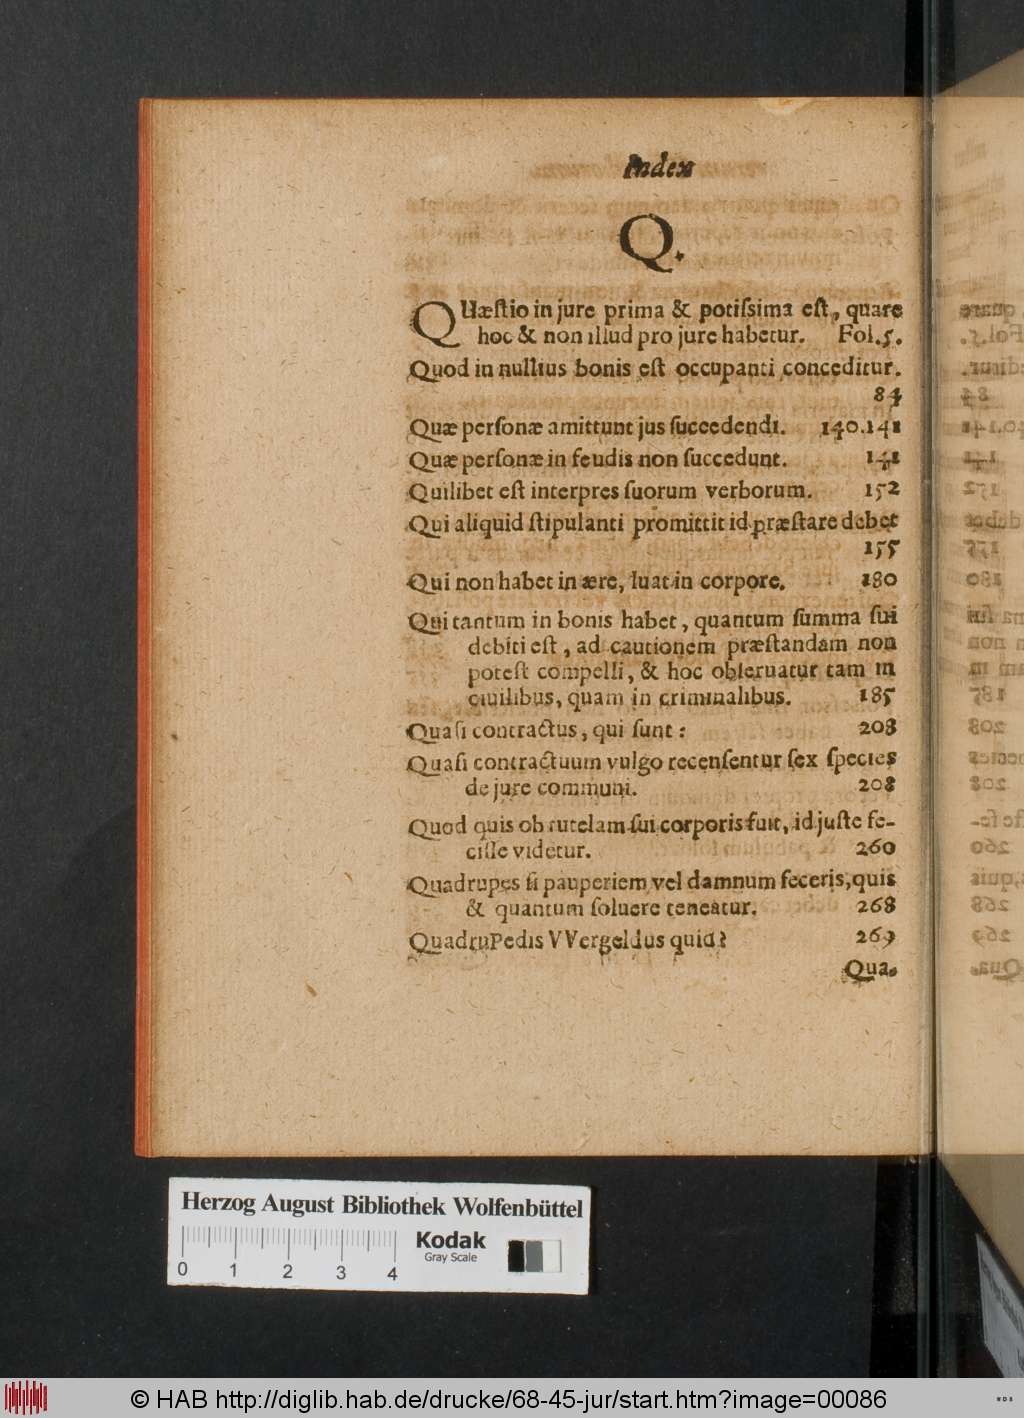 Index
Q.
QUæſtio in jure prima & potiſsima eſt, quare
hoc & non illud pro jure habetur. Fol. 5.
Quod in nullius bonis eſt occupanti conceditur.
84
Quæ perſonæ amittunt jus ſuccedendi. 140.141
Quæ perſonæ in feudis non ſuccedunt. 141
Quilibet eſt interpres ſuorum verborum. 152
Qui aliquid ſtipulanti promittit id præſtare debet
155
Qui non habet in ære, luat in corpore. 180
Qui tantum in bonis habet, quantum ſumma ſui
debiti eſt, ad cautionem præſtandam non
poteſt compelli, & hoc obſeruatur tam in
ciuilibus, quam in criminalibus. 185
Quaſi contractus, qui ſunt: 208
Quaſi contractuum vulgo recenſentur ſex ſpecies
de jure communi. 208
Quod quis ob tutelam ſui corporis fuit, id juſte fe-
ciſſe videtur. 260
Quadrupes ſi pauperiem vel damnum feceris, quis
& quantum ſoluere teneatur. 268
QuadruPedis VVergeldus quid? 269
Qua.
Herzog August Bibliothek Wolfenbüttel
0 1 2 3 4
Kodak
Gray Scale
© HAB http://diglib.hab.de/drucke/68-45-jur/start.htm?image=00086